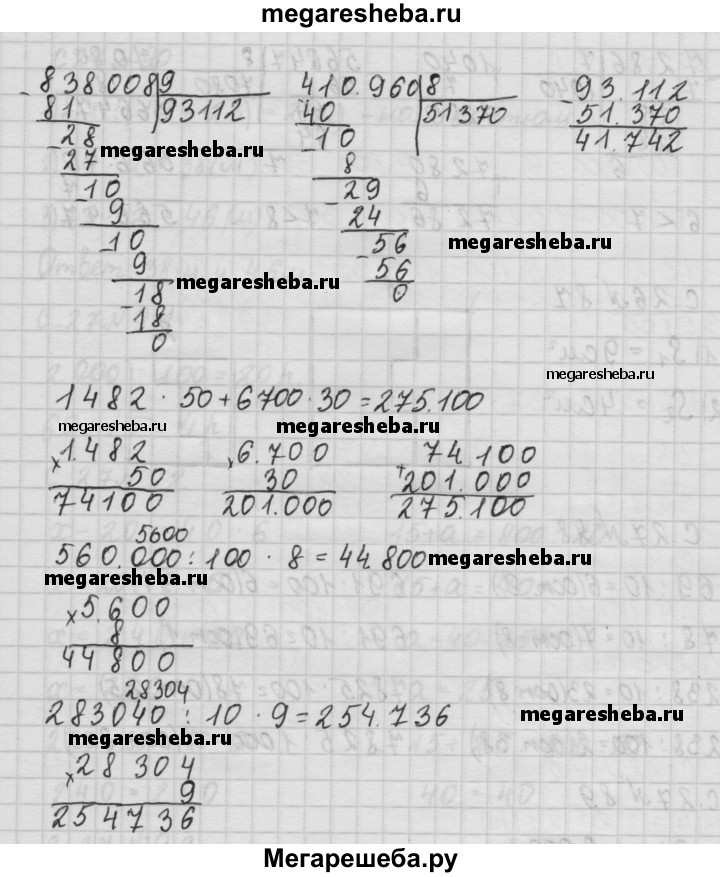 megaresheba.ru
838008 9 410.960 8 93.112
81 93112 40 51370 51.370
28 10 41.742
27 megaresheba.ru 8
10 29
9 24
10 56 megaresheba.ru
9 megaresheba.ru 56
18 0
18
0
megaresheba.ru
1482 · 50 + 6700 · 30 = 275.100
megaresheba.ru megaresheba.ru megaresheba.ru
×1.482 ×6.700 74.100
50 30 +201.000
74100 201.000 275.100
5600
560.000 : 100 · 8 = 44.800 megaresheba.ru
megaresheba.ru
×5.600
8
44800
28304
283040 : 10 · 9 = 254.736 megaresheba.ru
megaresheba.ru
×28304
9
254736
Мегарешеба.ру